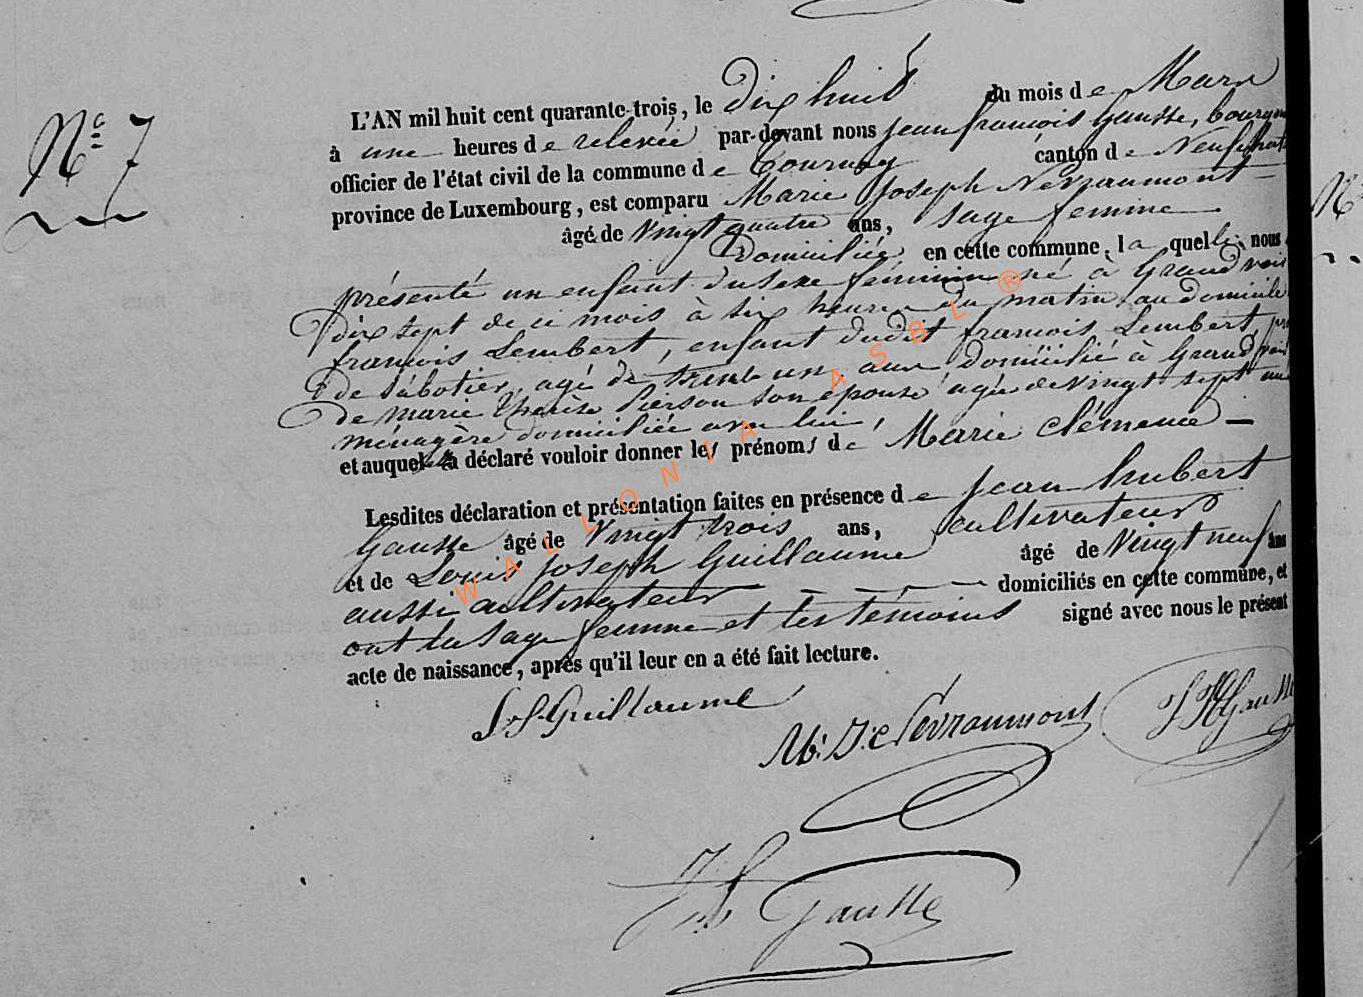 Nº 7
L'AN mil huit cent quarante-trois, le dix huit du mois de Mars
à une heures de relevée par-devant nous jean françois Gausse, bourgm
officier de l'état civil de la commune de Tournay canton de Neufchat
province de Luxembourg, est comparu Marie Joseph Nevraumont
âgé de Vingt quatre ans, sage femme
domiciliée en cette commune, laquelle nous
présenté un enfant du sexe féminin né à Grandvoir
Dix sept de ce mois à six heures du matin au domicile
françois Lembert, enfant dudit françois Lembert,
de sabotier, agé de trente un ans domicilié à Grandvoir
De marie Therèse Pierson son épouse agée de vingt sept ans
ménagère domiciliée avec lui,
et auquel a déclaré vouloir donner les prénoms de Marie Clémence
Lesdites déclaration et présentation faites en présence de jean hubert
Gausse âgé de Vingt trois ans, cultivateur
et de Louis joseph Guillaume âgé de Vingt neuf ans
aussi cultivateur domiciliés en cette commune, et
ont la sage femme et les témoins signé avec nous le présent
acte de naissance, après qu'il leur en a été fait lecture.
Guillaume
M. J. Nevraumont
J H Gausse
Gausse
WALLONIA ASBL ®